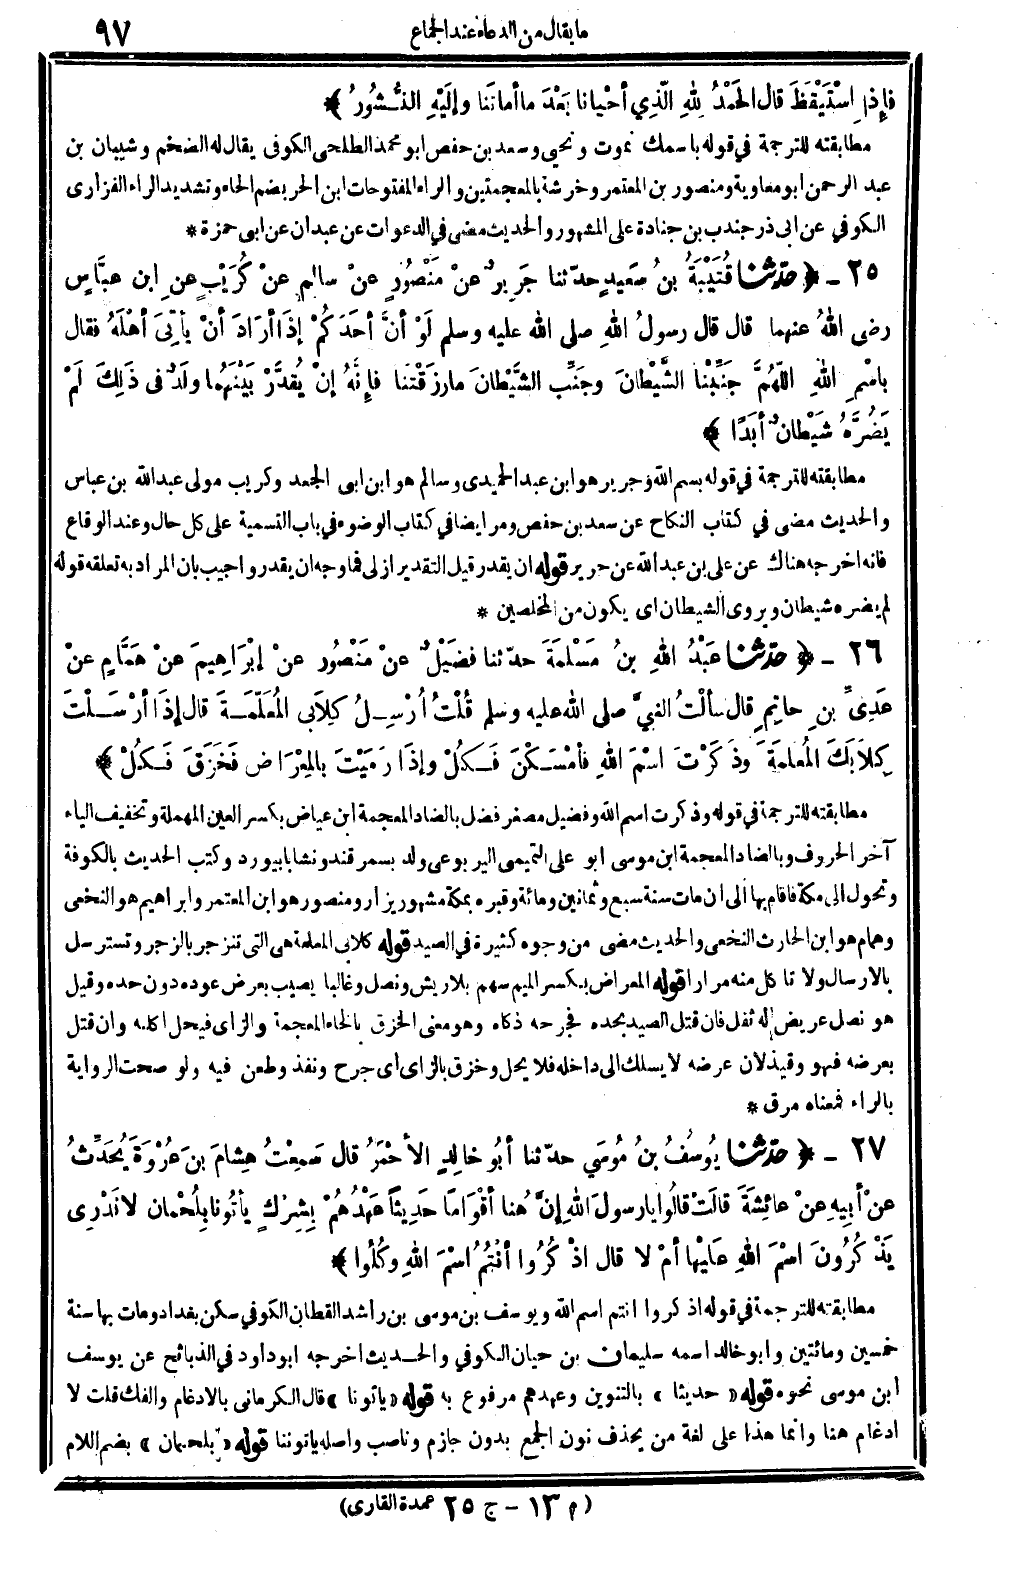 ما يقال من الدعاء عند الجماع ٩٧
فإذا اسْتَيْقَظَ قال الحَمْدُ لِلهِ الَّذِي أحْيانا بَعْدَ ما أماتَنا وإلَيْهِ النُّشُورُ ﴾
مطابقته للترجمة في قوله باسمك نموت ونحيى وسعد بن حفص ابو محمد الطلحى الكوفى يقال له الضخم وشيبان بن
عبد الرحمن ابو معاوية ومنصور بن المعتمر وخرشة بالمعجمتين والراء المفتوحات ابن الحر بضم الحاء وتشديد الراء الفزارى
الكوفي عن ابى ذر جندب بن جنادة على المشهور والحديث مضى في الدعوات عن عبدان عن ابى حمزة *
٢٥ - ﴿ حدّثنا قُتَيْبَةُ بنُ سَعِيدٍ حدّثنا جَرِيرٌ عنْ مَنْصُورٍ عنْ سالِمٍ عنْ كُرَيْبٍ عنِ ابن عبَّاسٍ
رضى اللهُ عنهما قال قال رسولُ اللهِ صلى الله عليه وسلم لَوْ أنَّ أحَدَكُمْ إذَا أرَادَ أنْ يأتِىَ أهْلَهُ فقال
باسْمِ اللهِ اللّهُمَّ جَنِّبْنا الشَّيْطانَ وجَنِّبِ الشَّيْطانَ ما رزَقْتَنا فإنَّهُ إنْ يُقدَّرْ بَيْنَهُما ولَدٌ فى ذَلِكَ لَمْ
يَضُرَّهُ شَيْطانٌ أبَدًا ﴾
مطابقته للترجمة في قوله بسم الله وجرير هو ابن عبد الحميدى وسالم هو ابن ابى الجعد وكريب مولى عبدالله بن عباس
والحديث مضى في كتاب النكاح عن سعد بن حفص ومر ايضا في كتاب الوضوء في باب التسمية على كل حال وعند الوقاع
فانه اخرجه هناك عن على بن عبدالله عن جرير قوله ان يقدر قيل التقدير ازلى فما وجه ان يقدر واجيب بان المراد به تعلقه قوله
لم يضره شيطان ويروى الشيطان اى يكون من المخلصين *
٢٦ - ﴿ حدّثنا عَبْدُ اللهِ بنُ مَسْلَمَةَ حدّثنا فضَيْلٌ عنْ مَنْصُور عنْ إبْرَاهِيمَ عنْ هَمَّامٍ عنْ
عَدِىِّ بنِ حاتِمٍ قال سألْتُ النبيَّ صلى الله عليه وسلم قُلْتُ أُرْسِلُ كِلاَبى المُعَلَّمَةَ قال إذَا أرْسَلْتَ
كِلاَبَكَ المُعلمَةَ وذَكَرْتَ اسْمَ اللهِ فأمْسَكْنَ فَكُلْ وإذَا رَمَيْتَ بالمِعْرَاضِ فَخَزَقَ فَكُلْ ﴾
مطابقته للترجمة في قوله وذكرت اسم الله وفضيل مصغر فضل بالضاد المعجمة ابن عياض بكسر العين المهملة وتخفيف الياء
آخر الحروف وبالضاد المعجمة ابن موسى ابو على التميمى اليربوعى ولد بسمرقند ونشا بابيورد وكتب الحديث بالكوفة
وتحول الى مكة فاقام بها الى ان مات سنة سبع وثمانين ومائة وقبره بمكة مشهور يزار ومنصور هو ابن المعتمر وابراهيم هو النخعى
وهمام هو ابن الحارث النخعى والحديث مضى من وجوه كثيرة في الصيد قوله كلابى المعلمة هى التى تنزجر بالزجر وتسترسل
بالارسال ولا تاكل منه مرارا قوله المعراض بكسر الميم سهم بلاريش ونصل وغالبا يصيب بعرض عوده دون حده وقيل
هو نصل عريض له ثقل فان قتل الصيد بحده فجرحه ذكاه وهو معنى الخزق بالخاء المعجمة والزاى فيحل اكله وان قتل
بعرضه فهو وقيذ لان عرضه لا يسلك الى داخله فلا يحل وخزق بالزاى اى جرح ونفذ وطعن فيه ولو صحت الرواية
بالراء فمعناه مرق *
٢٧ - ﴿ حدّثنا يُوسُفُ بنُ مُوسَي حدّثنا أبُو خالِدٍ الأحْمَرُ قال سَمِعْتُ هِشامَ بنَ عُرْوَةَ يُحَدِّثُ
عنْ أبِيهِ عنْ عائِشَةَ قالَتْ قالُوا يا رسولَ اللهِ إنَّ هُنا أقْوَامًا حَدِيثًا عَهْدُهُمْ بِشِرْكٍ يأتُونا بِلُحْمان لا نَدْرِى
يَذْكُرُونَ اسْمَ اللهِ عَلَيْها أمْ لا قال اذْكُرُوا أنْتُمُ اسْمَ اللهِ وكُلُوا ﴾
مطابقته للترجمة في قوله اذكروا انتم اسم الله ويوسف بن موسى بن راشد القطان الكوفي سكن بغداد ومات بها سنة
خمسين ومائتين وابو خالد اسمه سليمان بن حيان الكوفي والحديث اخرجه ابو داود في الذبائح عن يوسف
ابن موسى نحوه قوله « حديثا » بالتنوين وعهدهم مرفوع به قوله « ياتونا » قال الكرمانى بالادغام والفك قلت لا
ادغام هنا وانما هذا على لغة من يحذف نون الجمع بدون جازم وناصب واصله ياتوننا قوله « بلحمان » بضم اللام
(م ١٣ - ج ٢٥ عمدة القارى)